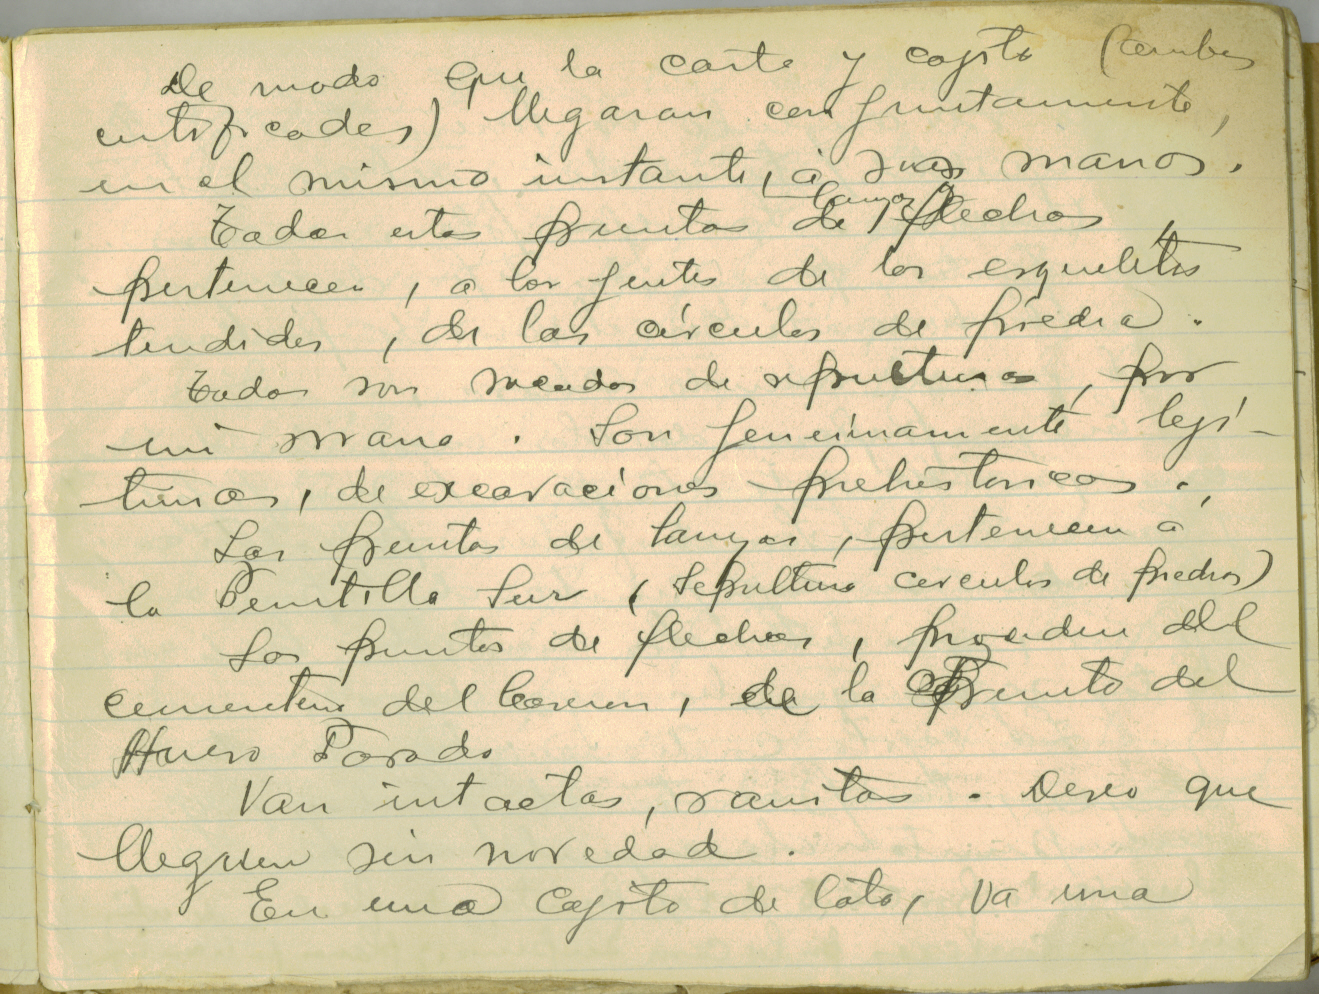 De modo que la carta y cajita (ambas
certificadas) llegaran conjuntamente,
en el mismo instante, á sus manos.
lanzas y
Todas estas puntas de flechas
pertenecen, a las gentes de los esqueletos
tendidos, de los círculos de piedra.
Todas son sacadas de sepulturas, por
mi mano. Son genuinamente legí-
timas, de excavaciones prehistoricas.
Las puntas de lanzas, pertenecen á
la Puntilla Sur, (Sepultura circulos de piedras)
Las puntas de flechas, proceden del
cementerio del, de la Punta del
Hueso Parado
Van intactas, sanitas. Deseo que
lleguen sin novedad.
En una cajita de lata, va una